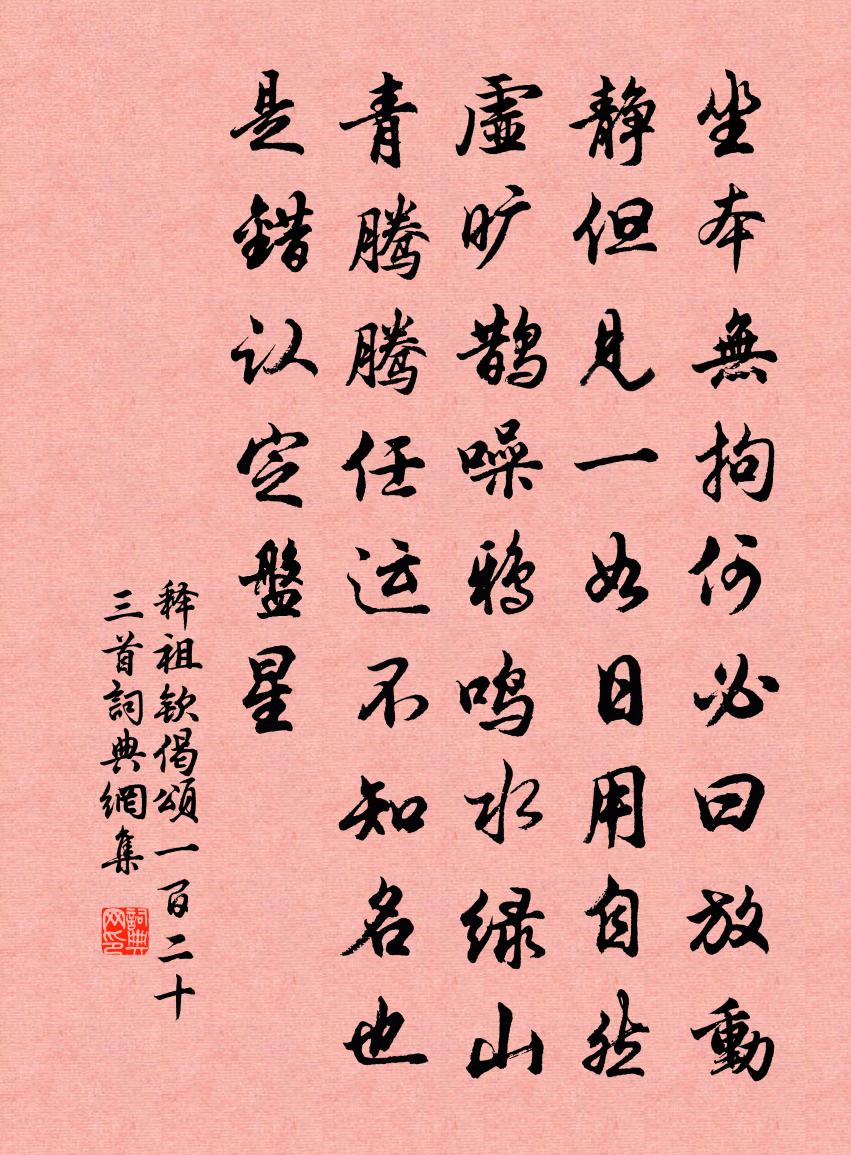 坐本無拘何必曰放動
静但见一如日用自然
虚旷鹊噪鸦鸣水绿山
青腾腾任运不知名也
是錯认定盤星
释祖钦偈頌一百二十
三首詞典網集
詞典网印